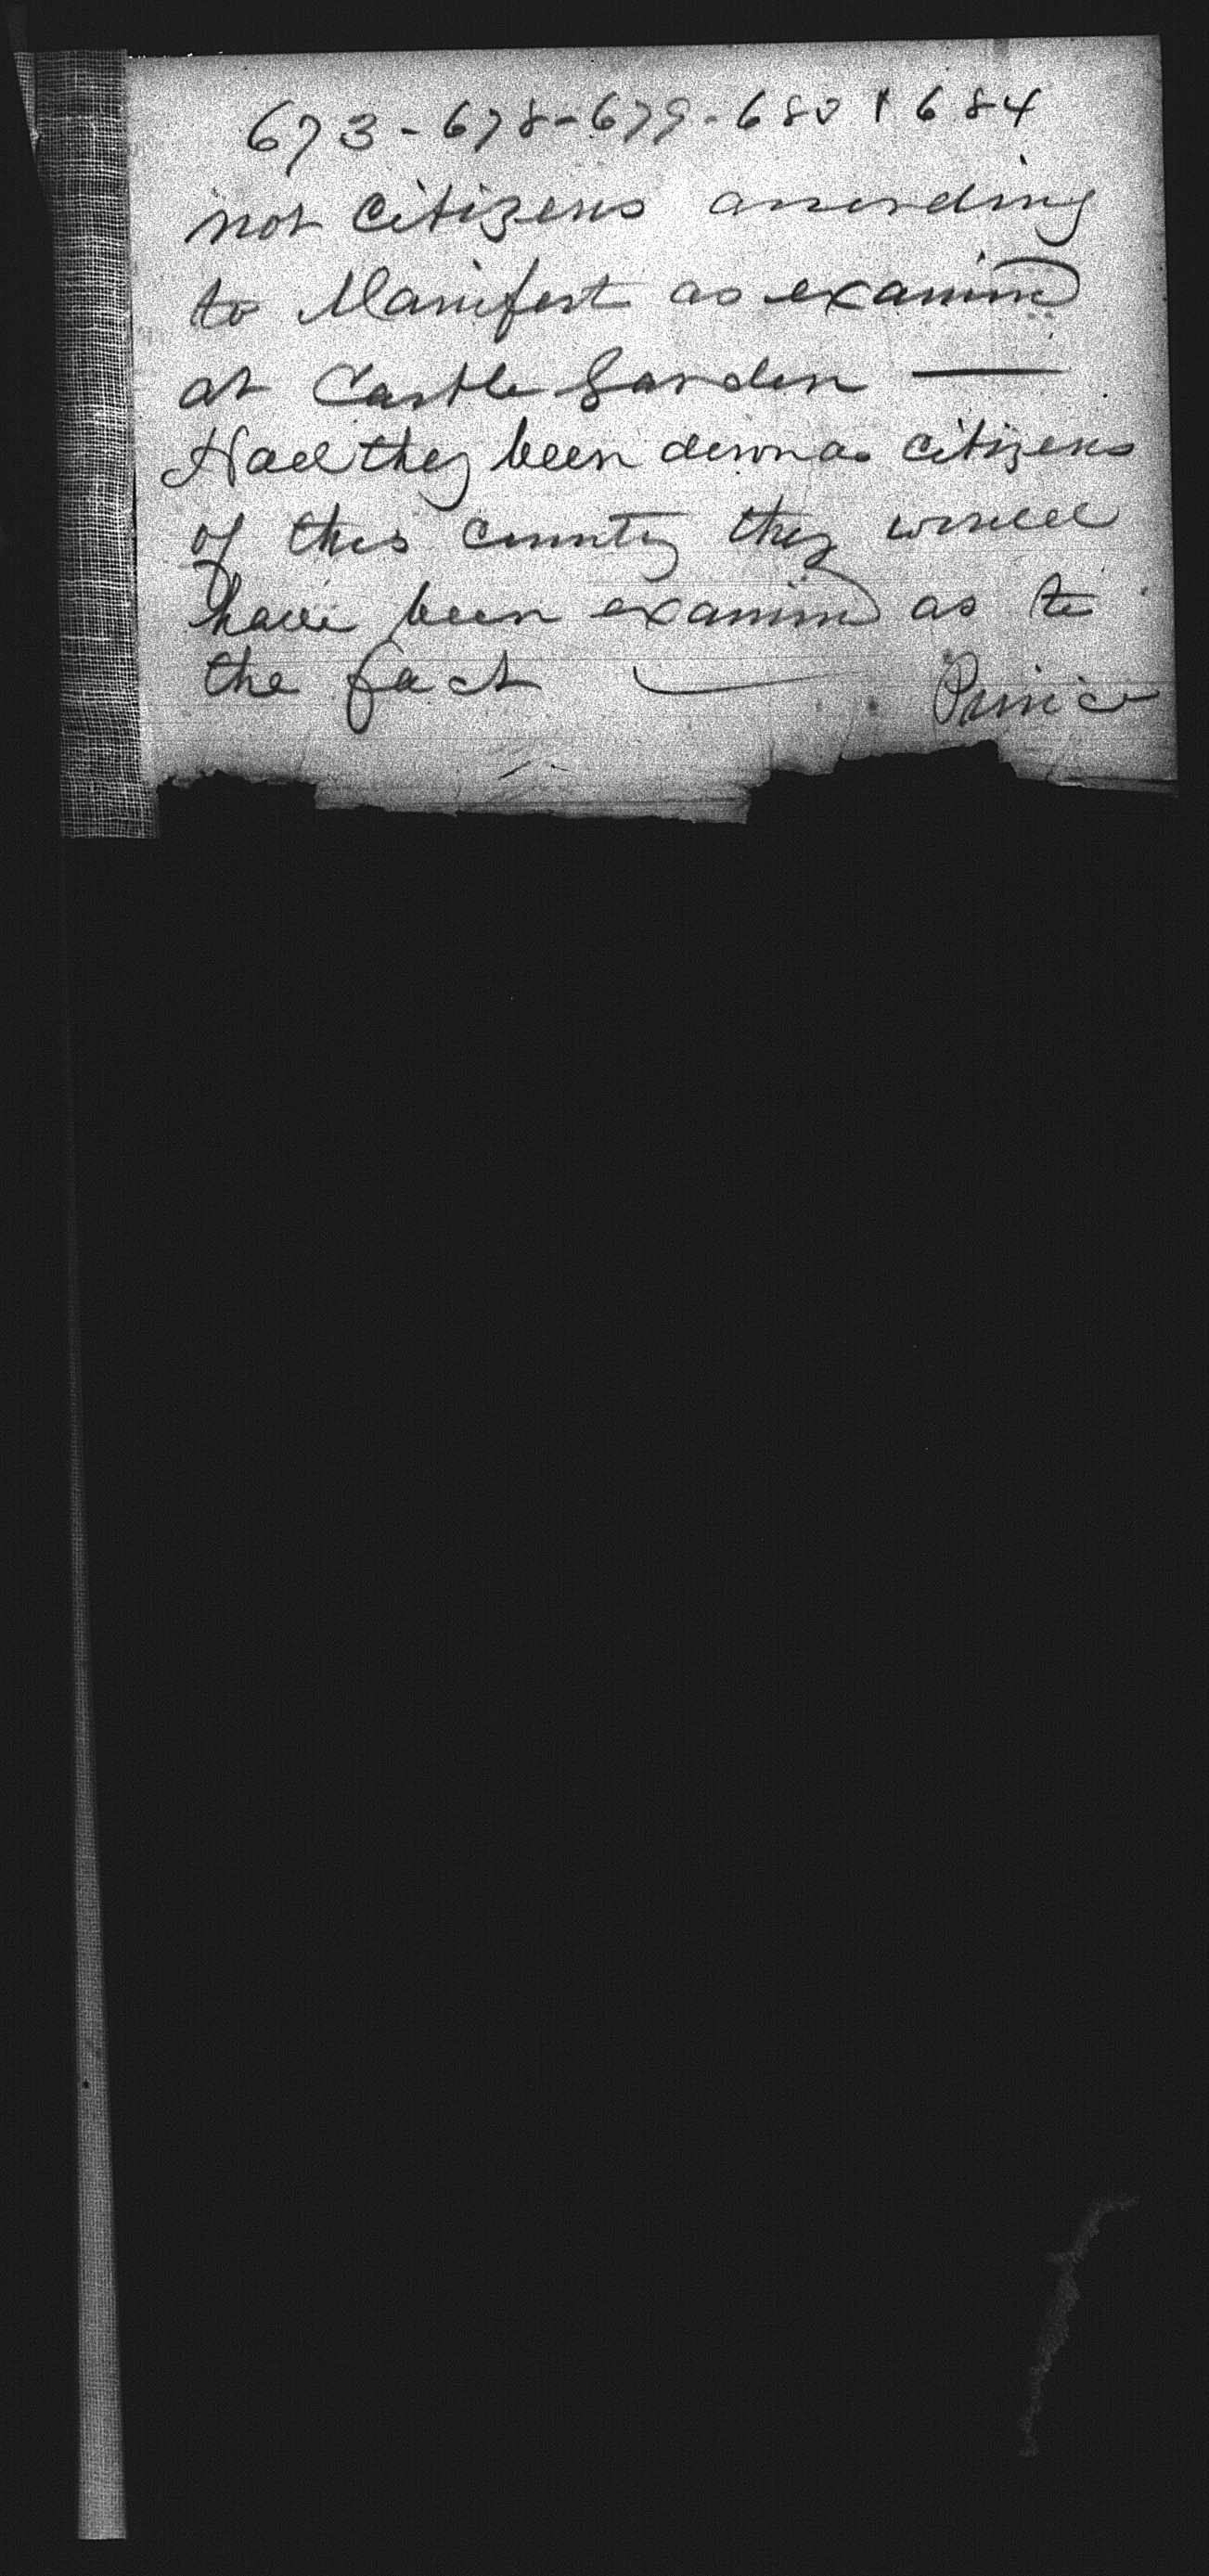 673 - 678 - 679 - 680 & 684
not citizens according
to Manifest as examined
at Castle Garden —
Had they been down as citizens
of this country they would
have been examined as to
the fact